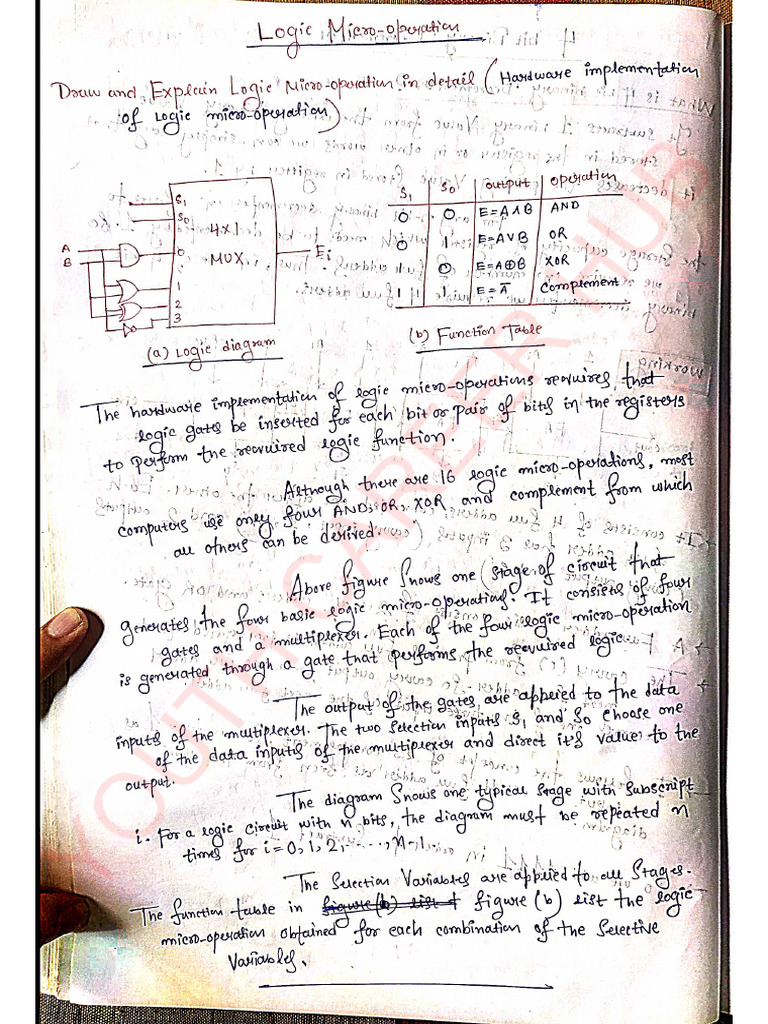 Logic Micro-operation
Draw and Explain Logic Micro-operation in detail (Hardware implementation
of Logic micro-operation).
S1
S0
4x1
MUX
A
B
0
1
2
3
Ei
(a) Logic diagram
S1 S0 output operation
0 0 E=A∧B AND
0 1 E=A∨B OR
1 0 E=A⊕B XOR
1 1 E=Ā Complement
(b) Function Table
The hardware implementation of logic micro-operations requires that
logic gates be inserted for each bit or pair of bits in the registers
to perform the required logic function.
Although there are 16 logic micro-operations, most
computers use only four AND, OR, XOR and complement from which
all others can be derived.
Above figure shows one stage of circuit that
generates the four basic logic micro-operations. It consists of four
gates and a multiplexer. Each of the four logic micro-operation
is generated through a gate that performs the required logic.
The output of the gates are applied to the data
inputs of the multiplexer. The two selection inputs S1 and S0 choose one
of the data inputs of the multiplexer and direct it's value to the
output.
The diagram shows one typical stage with subscript
i. For a logic circuit with n bits, the diagram must be repeated n
times for i=0,1,2,.....,n-1.
The Selection Variables are applied to all stages.
The function table in figure (b) list the logic
micro-operation obtained for each combination of the selective
Variables.
YOUTH CAREER HUB